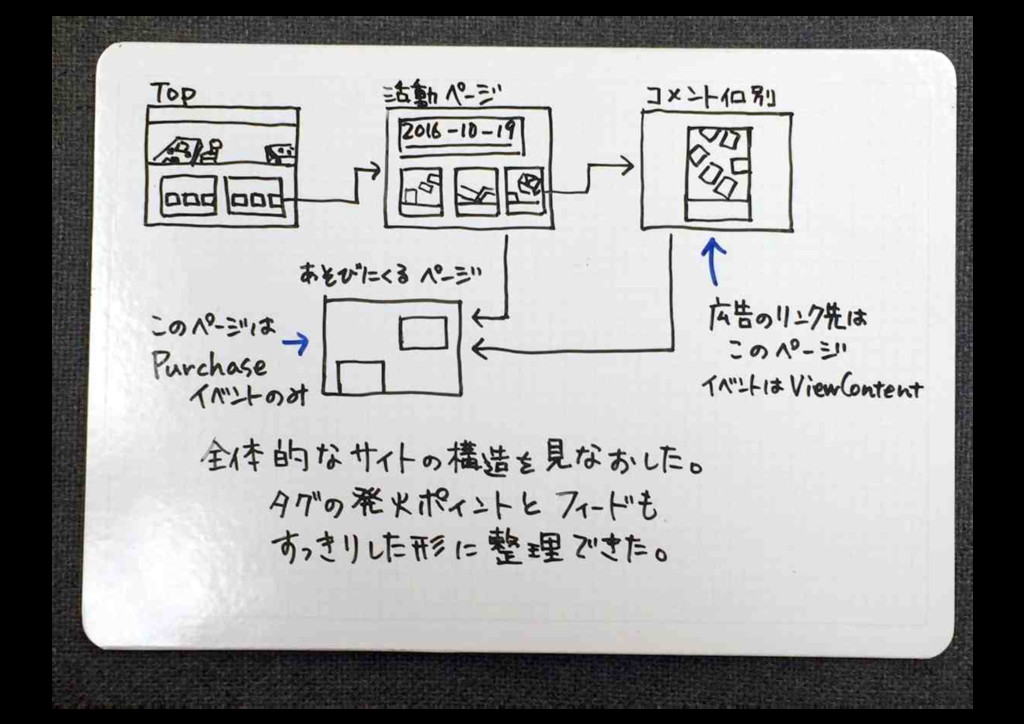 Top
活動ページ
コメント個別
2016-10-19
あそびにくるページ
このページは
Purchase
イベントのみ
広告のリンク先は
このページ
イベントはViewContent
全体的なサイトの構造を見なおした。
タグの発火ポイントとフィードも
すっきりした形に整理できた。